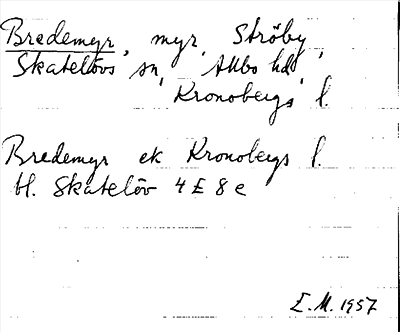 Bredemyr, myr, Ströby,
Skatelövs sn, Allbo hd,
Kronobergs l.
Bredemyr ek Kronobergs l.
bl. Skatelöv 4 E 8 e
E.M. 1957